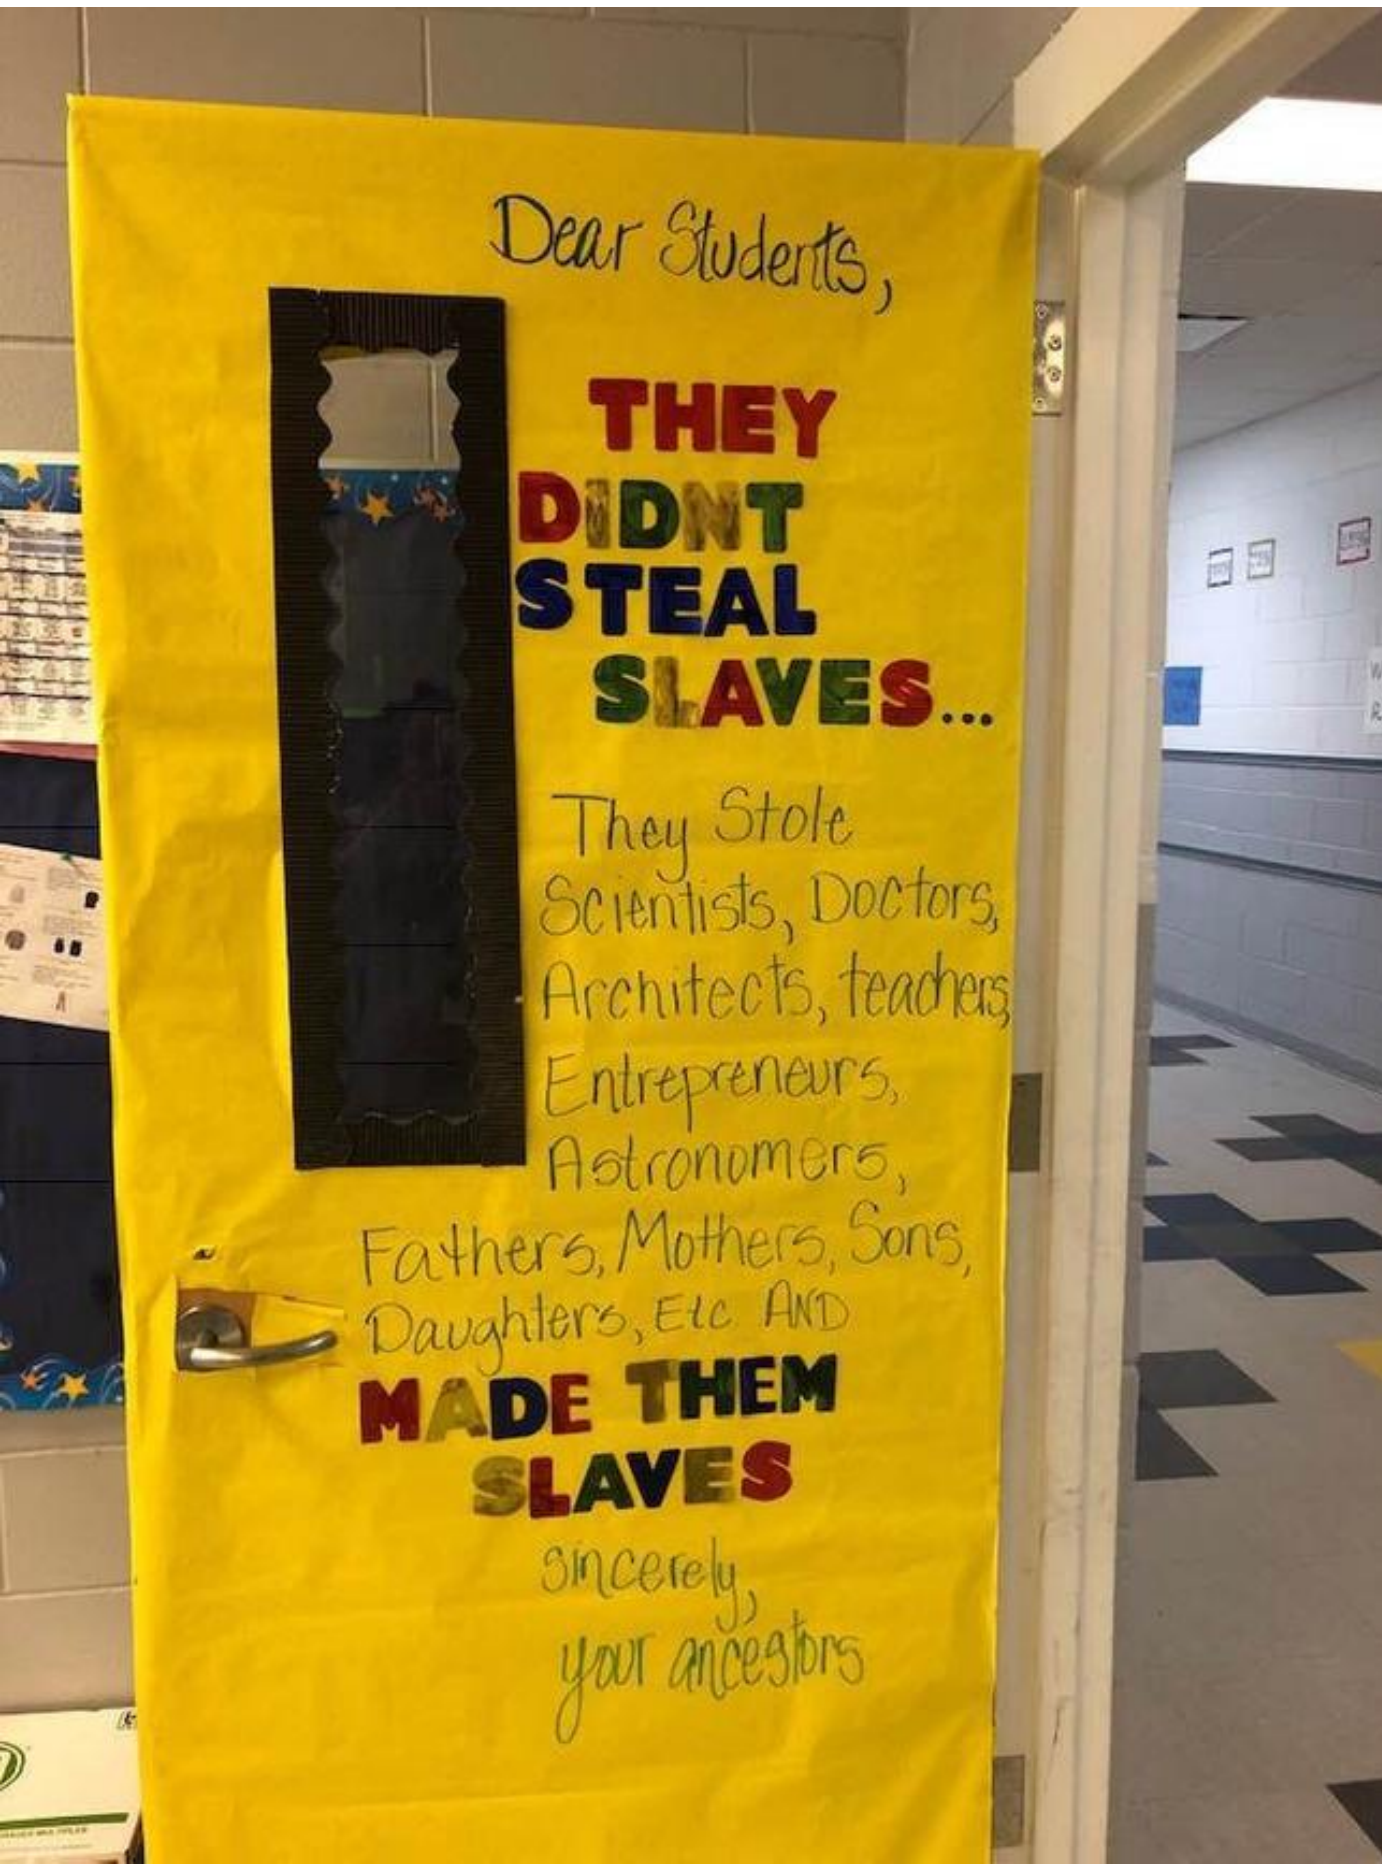 Dear Students,
THEY
DIDNT
STEAL
SLAVES...
They Stole
Scientists, Doctors,
Architects, teachers,
Entrepreneurs,
Astronomers,
Fathers, Mothers, Sons,
Daughters, Etc AND
MADE THEM
SLAVES
sincerely,
your ancestors